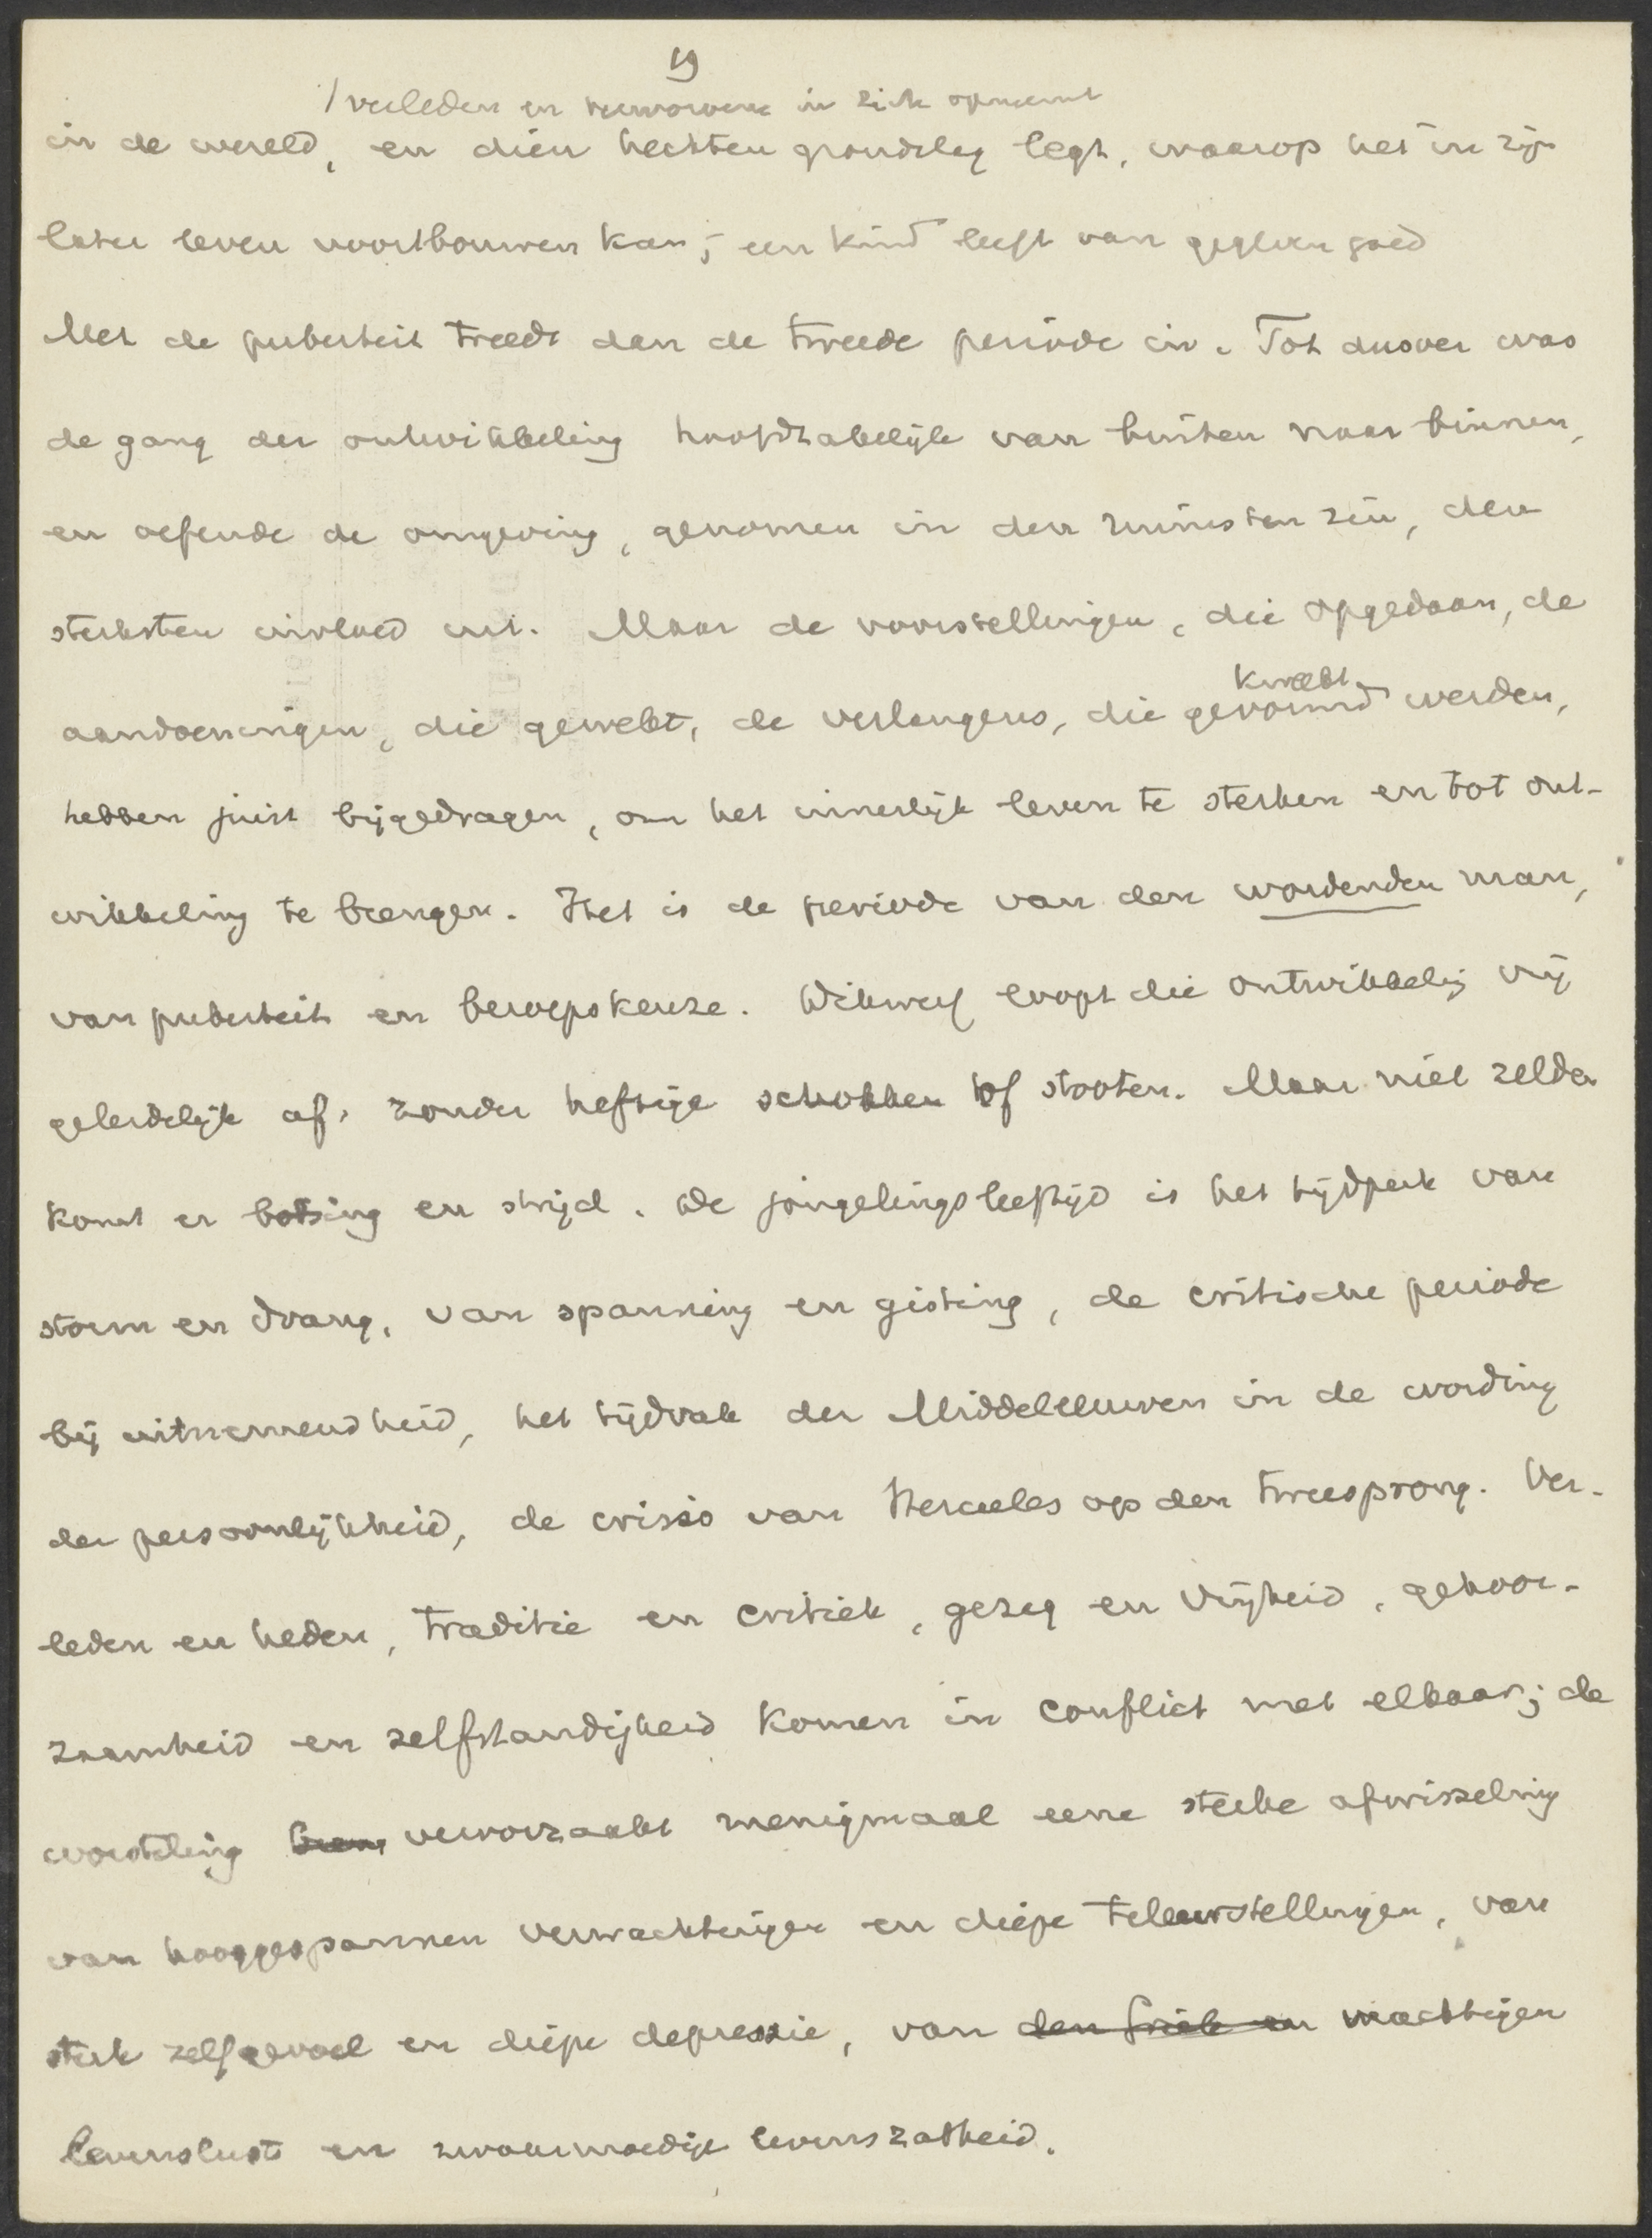 19
/ verleden en verworvene in zich opneemt
in de wereld, en dien hechten grondslag legt, waarop het in zijn
later leven voortbouwen kan; een kind leeft van gegeven goed
Met de puberteit treedt dan de tweede periode in. Tot dusver was
de gang der ontwikkeling hoofdzakelijk van buiten naar binnen,
en oefende de omgeving, genomen in den ruimsten zin, den
sterksten invloed uit. Maar de voorstellingen, die opgedaan, de
kweekt
aandoeningen, die gewekt, de verlangens, die gevormd werden,
hebben juist bijgedragen, om het innerlijk leven te sterken en tot ont-
wikkeling te brengen. Het is de periode van den wordenden man,
van puberteit en beroepskeuze. Dikwerf loopt die ontwikkeling vrij
geleidelijk af, zonder heftige schokken of stooten. Maar niet zelden
komt er botsing en strijd. De jongelingsleeftijd is het tijdperk van
storm en drang, van spanning en gisting, de critische periode
bij uitnemendheid, het tijdvak der Middeleeuwen in de wording
der persoonlijkheid, de crisis van Hercules op den tweesprong. Ver-
leden en heden, traditie en critiek, gezag en vrijheid, gehoor-
zaamheid en zelfstandigheid komen in conflict met elkaar; de
worsteling veroorzaakt menigmaal eene sterke afwisseling
van hooggespannen verwachtingen en diepe teleurstellingen, van
sterk zelfgevoel en diepe depressie, van machtigen
levenslust en zwaarmoedige levenszatheid.